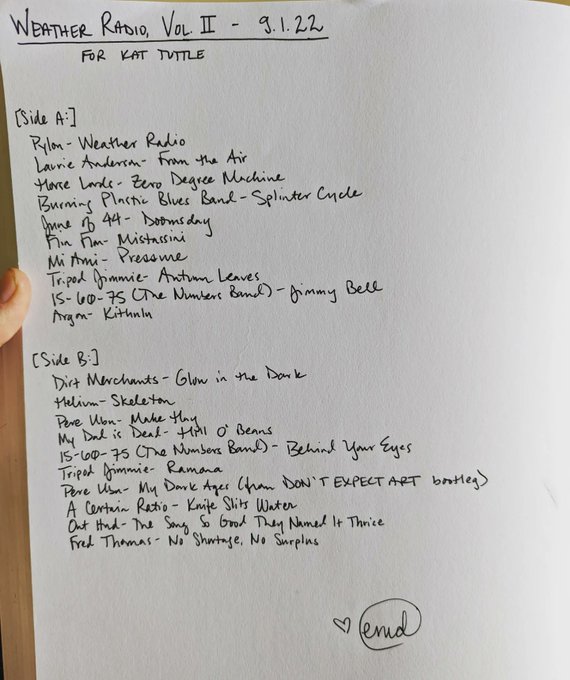 WEATHER RADIO, VOL. II - 9.1.22
FOR KAT TUTTLE
[Side A:]
Pylon- Weather Radio
Laurie Anderson- From the Air
Horse Lords- Zero Degree Machine
Burning Plastic Blues Band- Splinter Cycle
June of 44- Doomsday
Flin Flon- Mistassini
Mi Ami- Pressure
Tripod Jimmie- Autumn Leaves
15-60-75 (The Numbers Band)- Jimmy Bell
Argon- Kithnlu
[Side B:]
Dirt Merchants- Glow in the Dark
Helium- Skeleton
Pere Ubu- Make Hay
My Dad is Dead- Hill O' Beans
15-60-75 (The Numbers Band)- Behind Your Eyes
Tripod Jimmie- Ramana
Pere Ubu- My Dark Ages (from DON'T EXPECT ART bootleg)
A Certain Ratio- Knife Slits Water
Out Hud- The Song So Good They Named It Thrice
Fred Thomas- No Shortage, No Surplus
♡ enid